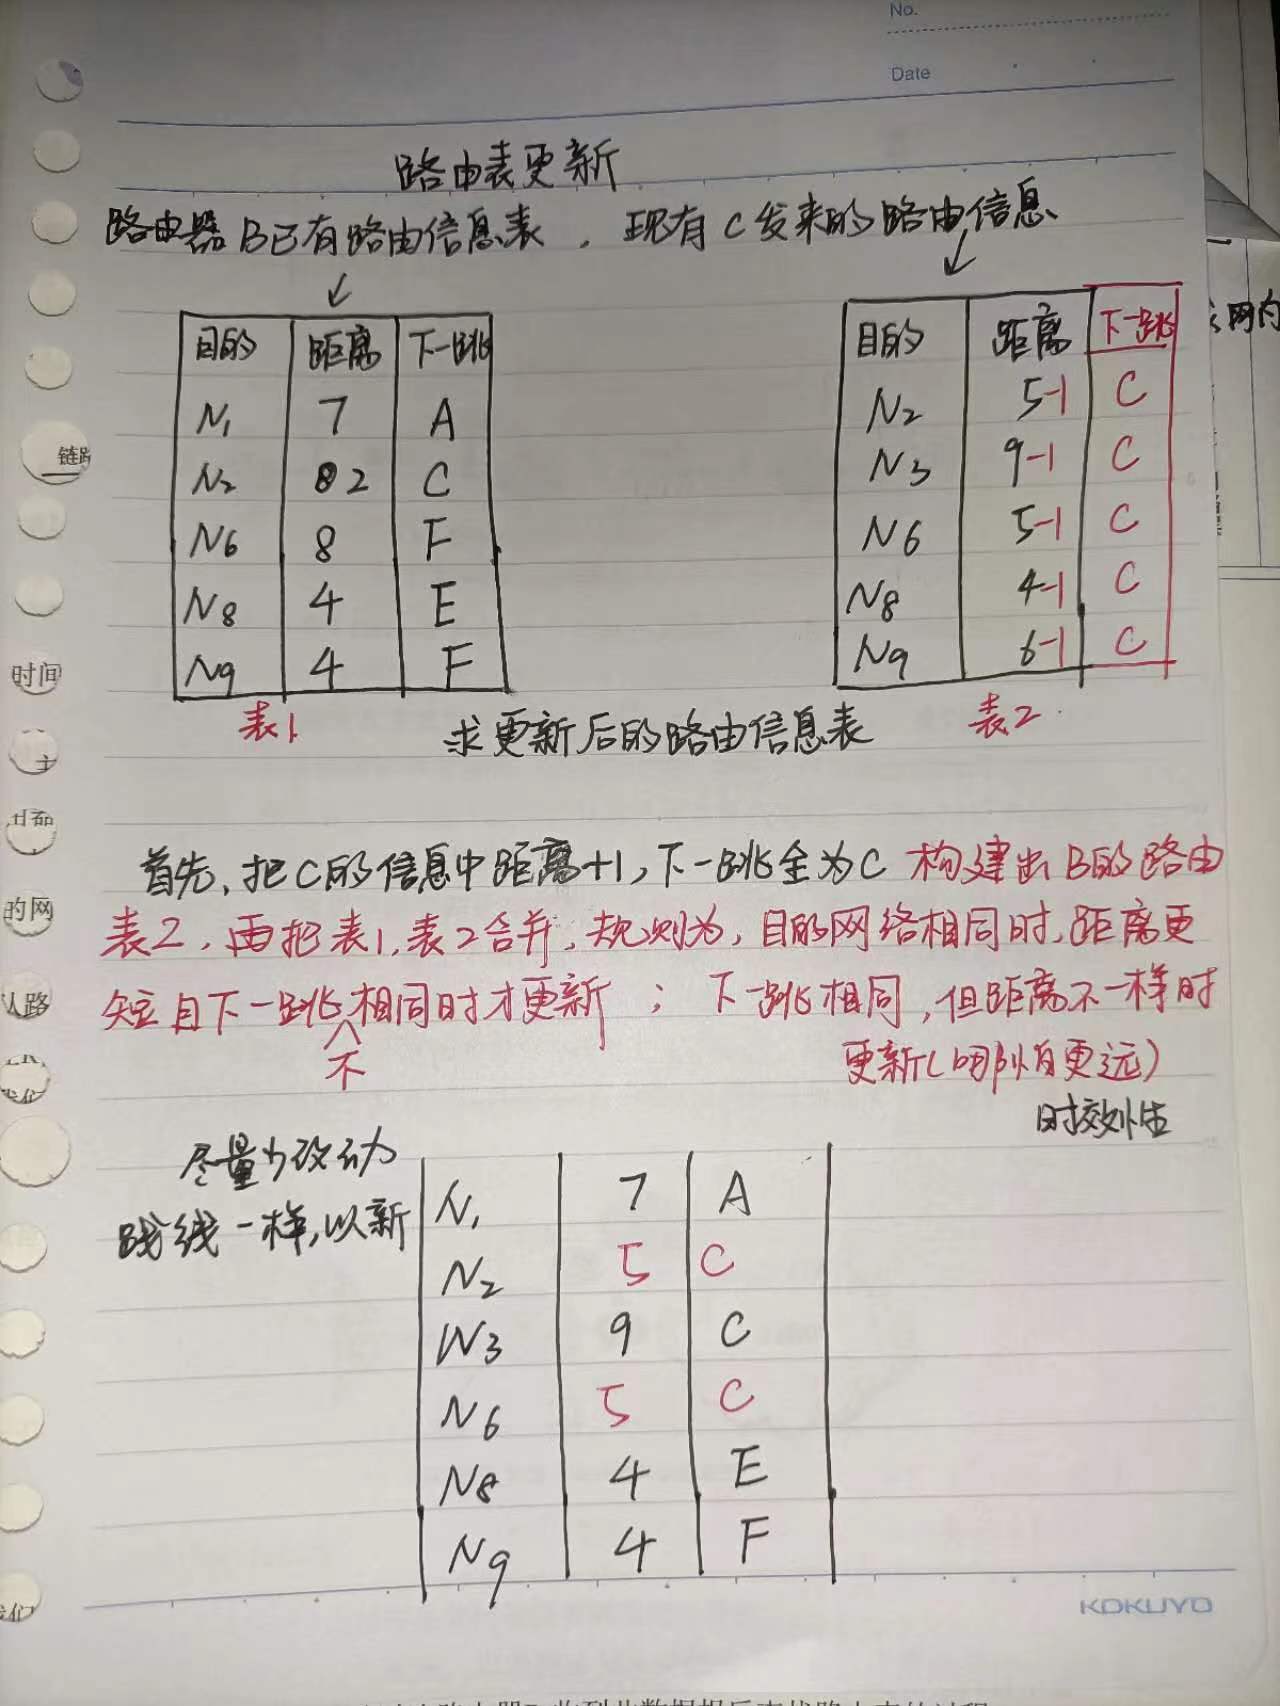 No.
Date
路由表更新
路由器B已有路由信息表，现有C发来的路由信息
目的 距离 下一跳
N1 7 A
N2 2 C
N6 8 F
N8 4 E
N9 4 F
表1
目的 距离 下一跳
N2 5-1 C
N3 9-1 C
N6 5-1 C
N8 4-1 C
N9 6-1 C
表2
求更新后的路由信息表
首先，把C的信息中距离+1，下一跳全为C 构建出B的路由
表2，再把表1，表2合并，规则为，目的网络相同时，距离更
短且下一跳不相同时才更新；下一跳相同，但距离不一样时
更新（哪怕更远）
时效性
尽量少改动
路线一样，以新
N1 7 A
N2 5 C
N3 9 C
N6 5 C
N8 4 E
N9 4 F
KOKUYO
链路
时间
主
的网
认路
网内